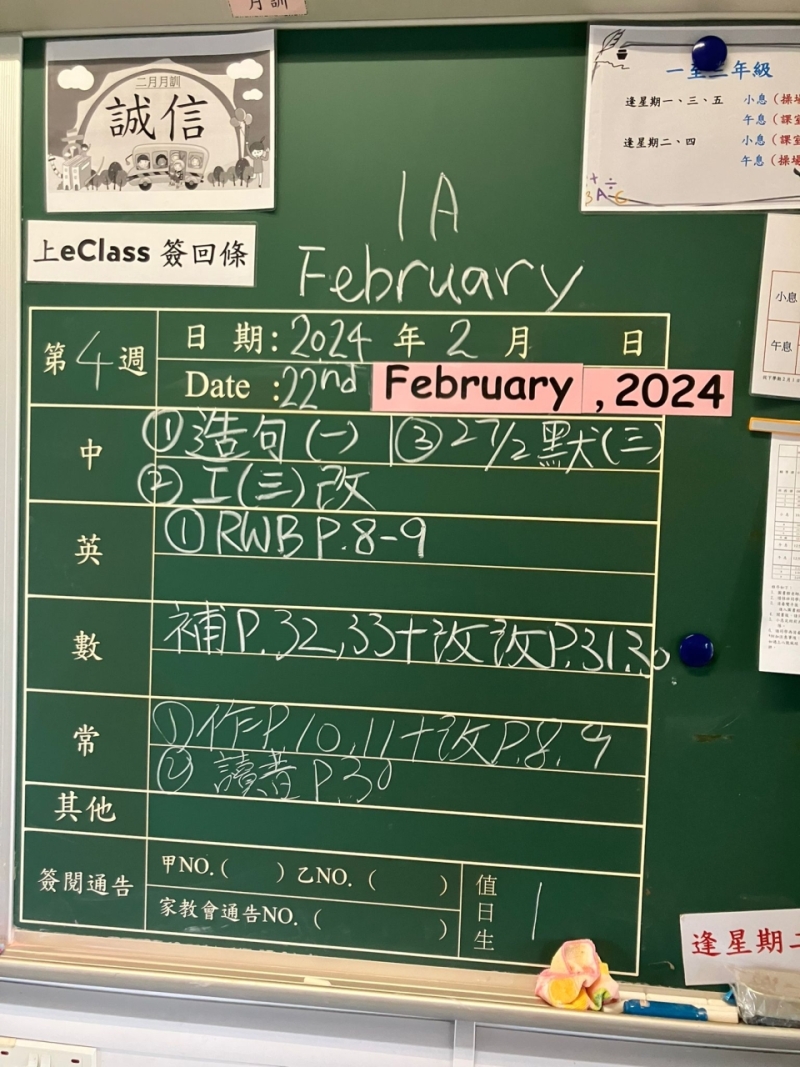 月訓
二月月訓
誠信
一至三年級
逢星期一、三、五 小息（操場
午息（課室
逢星期二、四 小息（課室
午息（操場
1A
上eClass 簽回條
February
小息
午息
第4週
日 期：2024 年 2 月 日
Date ：22nd February , 2024
中
① 造句(一) ③ 27/2默(三)
② 工(三)改
英
① RWB P.8-9
數
補P.32,33+改 改P.31,30
常
① 作P.10,11+改P.8,9
② 讀書P.30
其他
簽閱通告
甲NO.（ ）乙NO.（ ）
家教會通告NO.（ ）
值日生 1
逢星期二